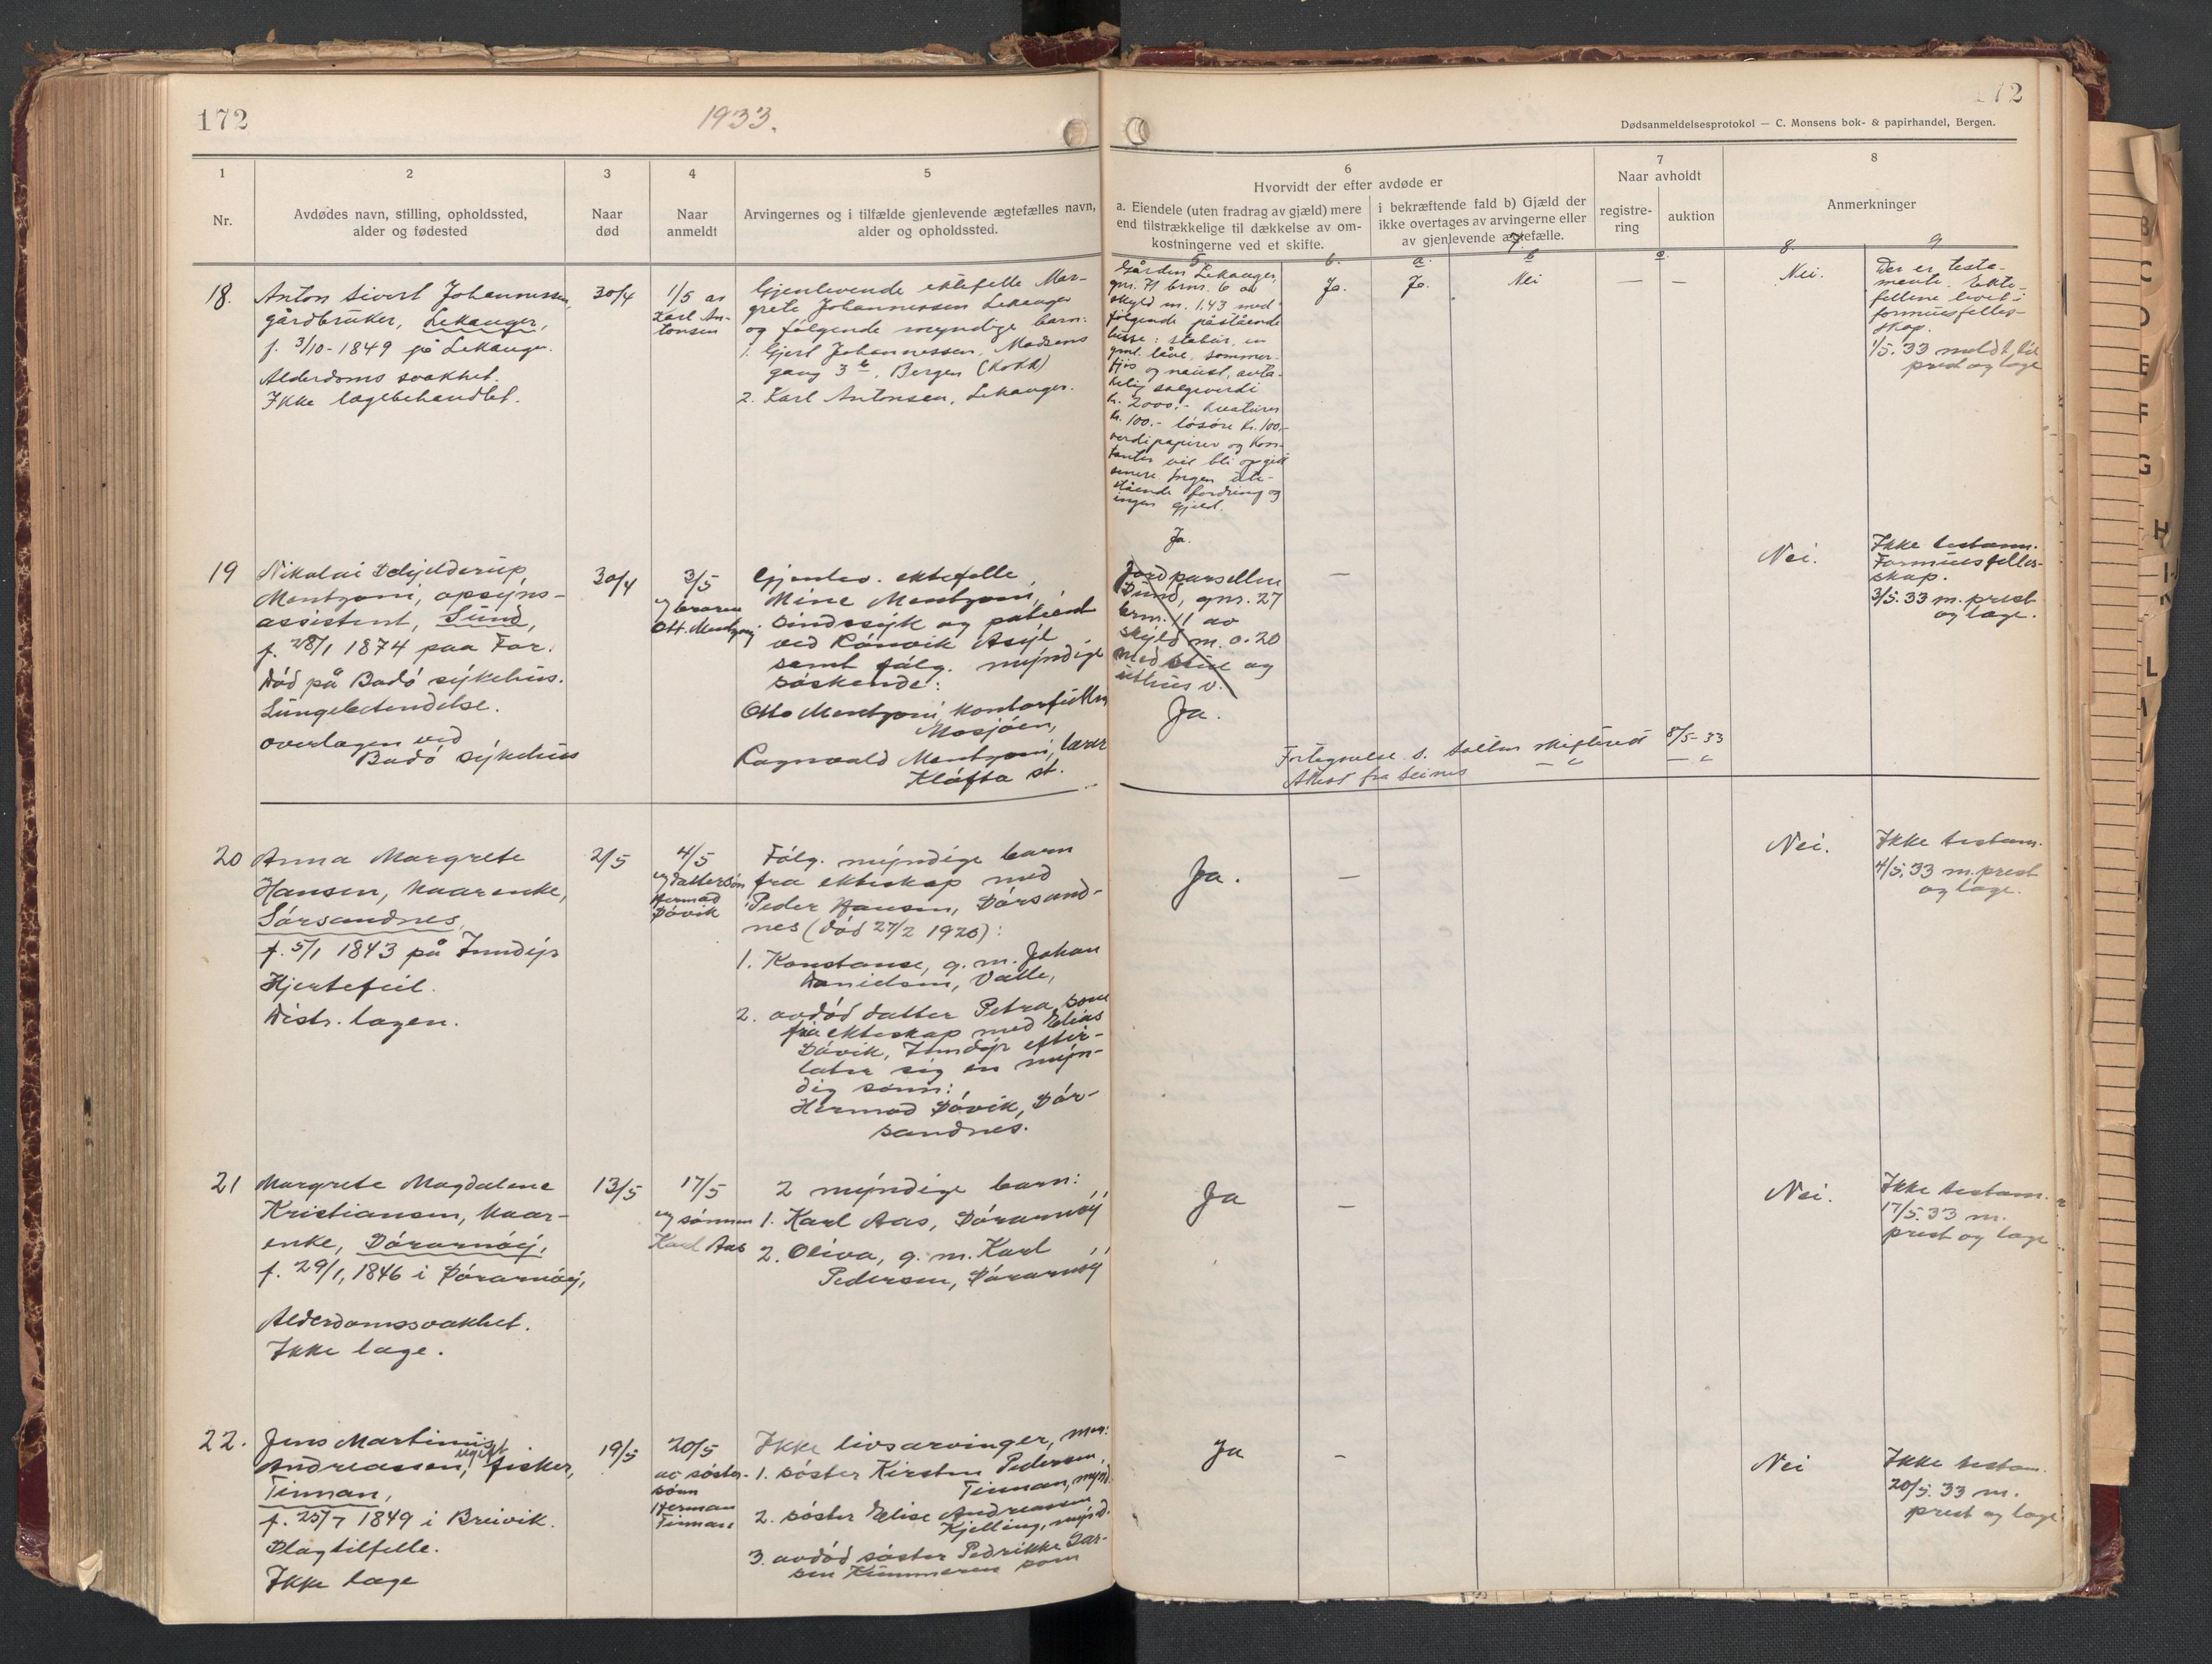 172
1933.
172
Dødsanmeldelsesprotokol — C. Monsens bok- & papirhandel, Bergen.
1
Nr.
2
Avdødes navn, stilling, opholdssted,
alder og fødested
3
Naar
død
4
Naar
anmeldt
5
Arvingernes og i tilfælde gjenlevende ægtefælles navn,
alder og opholdssted.
6
Hvorvidt der efter avdøde er
a. Eiendele (uten fradrag av gjæld) mere
end tilstrækkelige til dækkelse av om-
kostningerne ved et skifte.
i bekræftende fald b) Gjæld der
ikke overtages av arvingerne eller
av gjenlevende ægtefælle.
7
Naar avholdt
registre-
ring
auktion
8
Anmerkninger
5. 6. a. 7. b 8. 9
18.
Anton Sivert Johannessen,
gårdbruker, Lekanger,
f. 3/10-1849 på Lekanger.
Alderdoms svakhet.
Ikke lægebehandlet.
30/4
1/5 av
Karl An-
tonsen
Gjenlevende ektefelle Mar-
grete Johannessen Lekanger
og følgende myndige barn:
1. Gjert Johannessen, Madsens
gang 3 b, Bergen (Kokk)
2. Karl Antonsen, Lekanger.
Gården Lekanger,
gnr. 71 brnr. 6 av
skyld m. 1,43 med
følgende påstående
husse: stabur, en
gml. låve, sommer-
fjøs og naust, anta-
kelig salgsverdi
kr. 2000,- kreaturer
kr. 100.- løsøre kr. 100,-
verdipapirer og kon-
tanter vil bli opgitt
senere Ingen ute-
stående fordring og
ingen gjeld.
Ja.
Ja.
Ja.
Nei
—
—
Nei.
Der er testa-
mente. Ekte-
fellene levet i
formuesfelles-
skap.
1/5. 33 meldt til
prest og læge
19
Nikolai Dehjelderup
Mentzoni, opsyns-
assistent, Sund,
f. 28/1 1874 paa Før.
Død på Bodø sykehus.
Lungebetendelse.
overlægen ved
Bodø sykehus
30/4
3/5
av broren
Ott. Mentzoni
Gjenlev. ektefelle
Mine Mentzoni,
sindssyk og patient
ved Rønvik Asyl
samt følg. myndige
søskende:
Otto Mentzoni, Kontorfullm
Mosjøen,
Ragnvald Mentzoni, lærer
Kløfta st.
Jordparsellen
Sund, gnr. 27
brnr. 11 av
skyld m. 0.20
med stue og
uthus v.
Ja.
—
Nei.
Ikke testam.
Formuesfelles-
skap.
3/5. 33 m. prest
og læge.
Fortegnelse s. Salten skifterett 8/5-33
Attest fra Seines — " — "
20
Anna Margrete
Hansen, kaarenke,
Sørsandnes,
f. 5/1 1843 på Inndyr
Hjertefeil.
Distr. lægen.
2/5
4/5
av dattersøn
Hermod
Søvik
Følg. myndige barn
fra ekteskap med
Peder Hansen, Sørsand-
nes (død 27/2 1920):
1. Konstanse, g. m. Johan
Danielsen, Valle,
2. avdød datter Petra, som
fra ekteskap med Elias
Søvik, Inndyr efter-
later sig en myn-
dig sønn:
Hermod Søvik, Sør-
sandnes.
Ja.
—
Nei.
Ikke testam.
4/5. 33 m. prest
og læge.
21
Margrete Magdalene
Kristiansen, kaar-
enke, Sørarnøy,
f. 29/1, 1846 i Sørarnøy,
Alderdomssvakhet.
Ikke læge.
13/5
17/5
av sønnen
Karl Aas
2 myndige barn:
1. Karl Aas, Sørarnøy
2. Oliva, g. m. Karl
Pedersen, Sørarnøy
Ja
—
Nei.
Ikke testam.
17/5. 33 m.
prest og læge
22.
Jens Martinus
Andreassen, ugift fisker,
Finnan,
f. 25/7 1849 i Breivik.
Slagtilfelle.
Ikke læge
19/5
20/5
av søster-
sønn
Herman
Finnan
Ikke livsarvinger, men:
1. søster Kirsten Pedersen,
Finnan, mynd.
2. søster Elise Andreassen
Kjelling, mynd.
3. avdød søster Pedrikke Lar-
sen Kummeren som
Ja
—
Nei
Ikke testam.
20/5. 33 m.
prest og læge